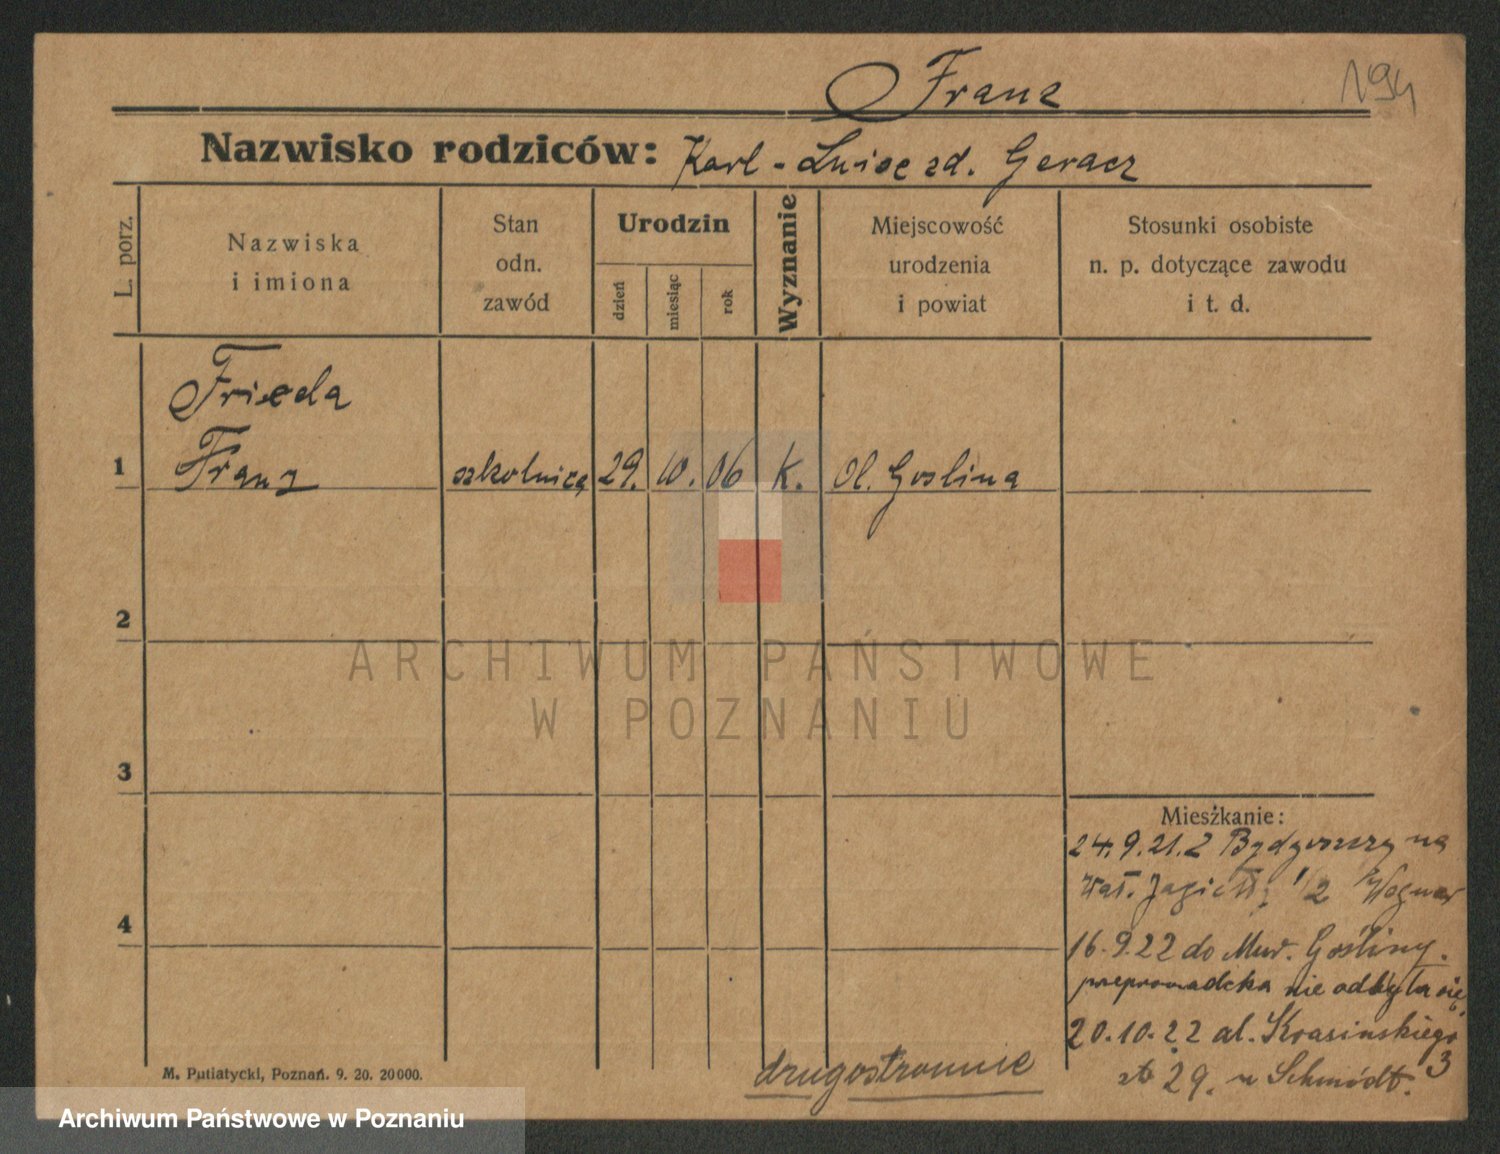 Franz
194
Nazwisko rodziców: Karl - Luise zd. Geracz
L. porz.
Nazwiska
i imiona
Stan
odn.
zawód
Urodzin
dzień
miesiąc
rok
Wyznanie
Miejscowość
urodzenia
i powiat
Stosunki osobiste
n. p. dotyczące zawodu
i t. d.
Frieda
1 Franz szkolnica 29. 10. 06 K. Ol. Goslina
2
ARCHIWUM PAŃSTWOWE
W POZNANIU
3
Mieszkanie:
24.9.21. z Bydgoszczy na
Wał. Jagiełły 1/2 Wegner
4
16.9.22 do Mur. Gośliny.
preprowadzka nie odbyła się.
20.10.22 al. Krasińskiego 3
29. u Schmödt.
drugostronnie
M. Putiatycki, Poznań. 9. 20. 20000.
Archiwum Państwowe w Poznaniu